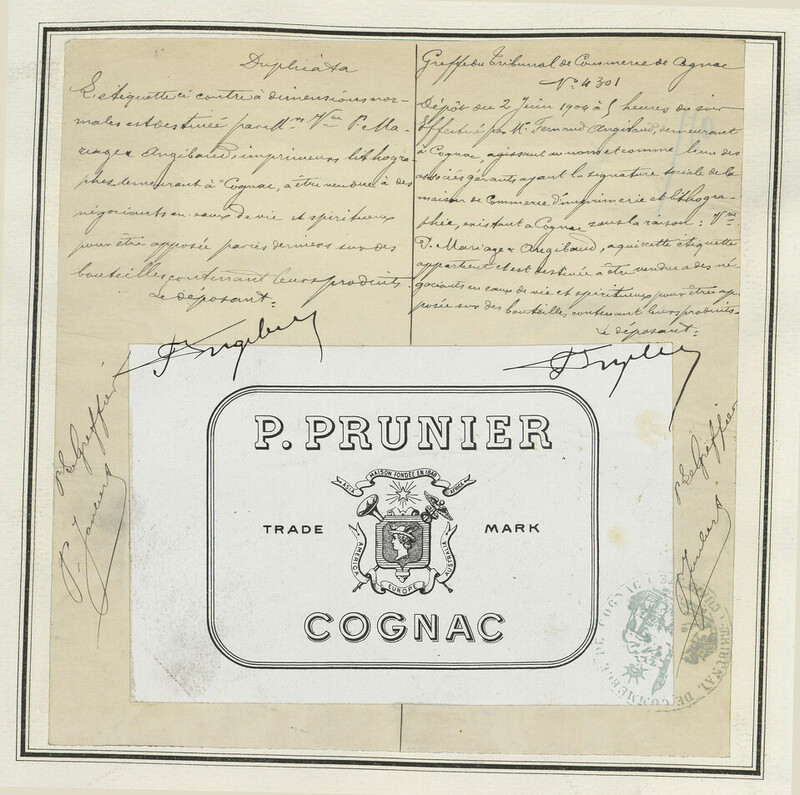 Duplicata
L'étiquette ci contre à dimensions nor-
males est destinée par Mrs Vve P. Ma-
riage & Angibaud, imprimeurs lithogra-
phes demeurant à Cognac, à être vendue à des
négociants en eaux de vie et spiritueux
pour être apposée par ces derniers sur des
bouteilles contenant leurs produits.
Le déposant:
Greffe du Tribunal de Commerce de Cognac
No 4301
Dépôt du 2 Juin 1904 à 5 heures du soir
Effectué par Mr Fernand Angibaud, demeurant
à Cognac, agissant au nom et comme l'un des
associés gérants ayant la signature sociale de la
maison de Commerce d'imprimerie et lithogra-
phie, existant à Cognac sous la raison: Vve
P. Mariage & Angibaud, à qui cette étiquette
appartient et est destinée à être vendue à des né-
gociants en eaux de vie et spiritueux pour être ap-
posée sur des bouteilles contenant leurs produits.
Le déposant:
pr Le Greffier
pr Le Greffier
P. PRUNIER
MAISON FONDÉE EN 1848
ASIA
AFRICA
TRADE MARK
AMERICA
AUSTRALIA
EUROPE
COGNAC
TRIBUNAL DE COMMERCE DE COGNAC